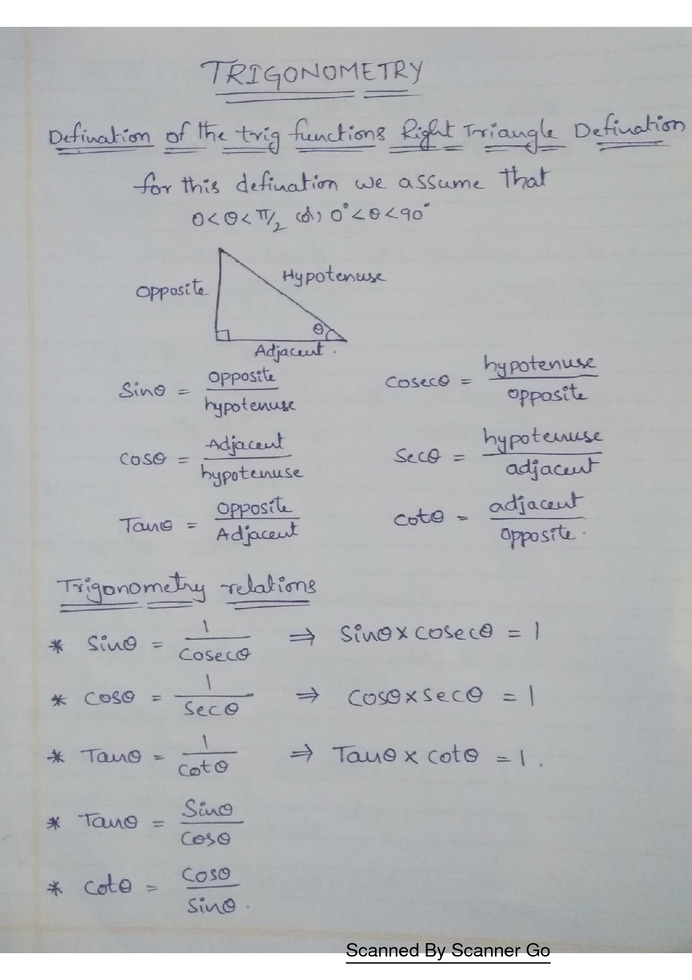 TRIGONOMETRY
Defination of the trig functions Right Triangle Defination
for this defination we assume that
0<θ<π/2 (or) 0°<θ<90°
Opposite
Hypotenuse
θ
Adjacent.
Sinθ = opposite/hypotenuse
Cosecθ = hypotenuse/opposite
cosθ = Adjacent/hypotenuse
Secθ = hypotenuse/adjacent
Tanθ = Opposite/Adjacent
Cotθ = adjacent/opposite.
Trigonometry relations
* Sinθ = 1/Cosecθ ⇒ Sinθ×cosecθ = 1
* Cosθ = 1/Secθ ⇒ Cosθ×secθ = 1
* Tanθ = 1/Cotθ ⇒ Tanθ×cotθ = 1.
* Tanθ = Sinθ/Cosθ
* Cotθ = Cosθ/Sinθ.
Scanned By Scanner Go